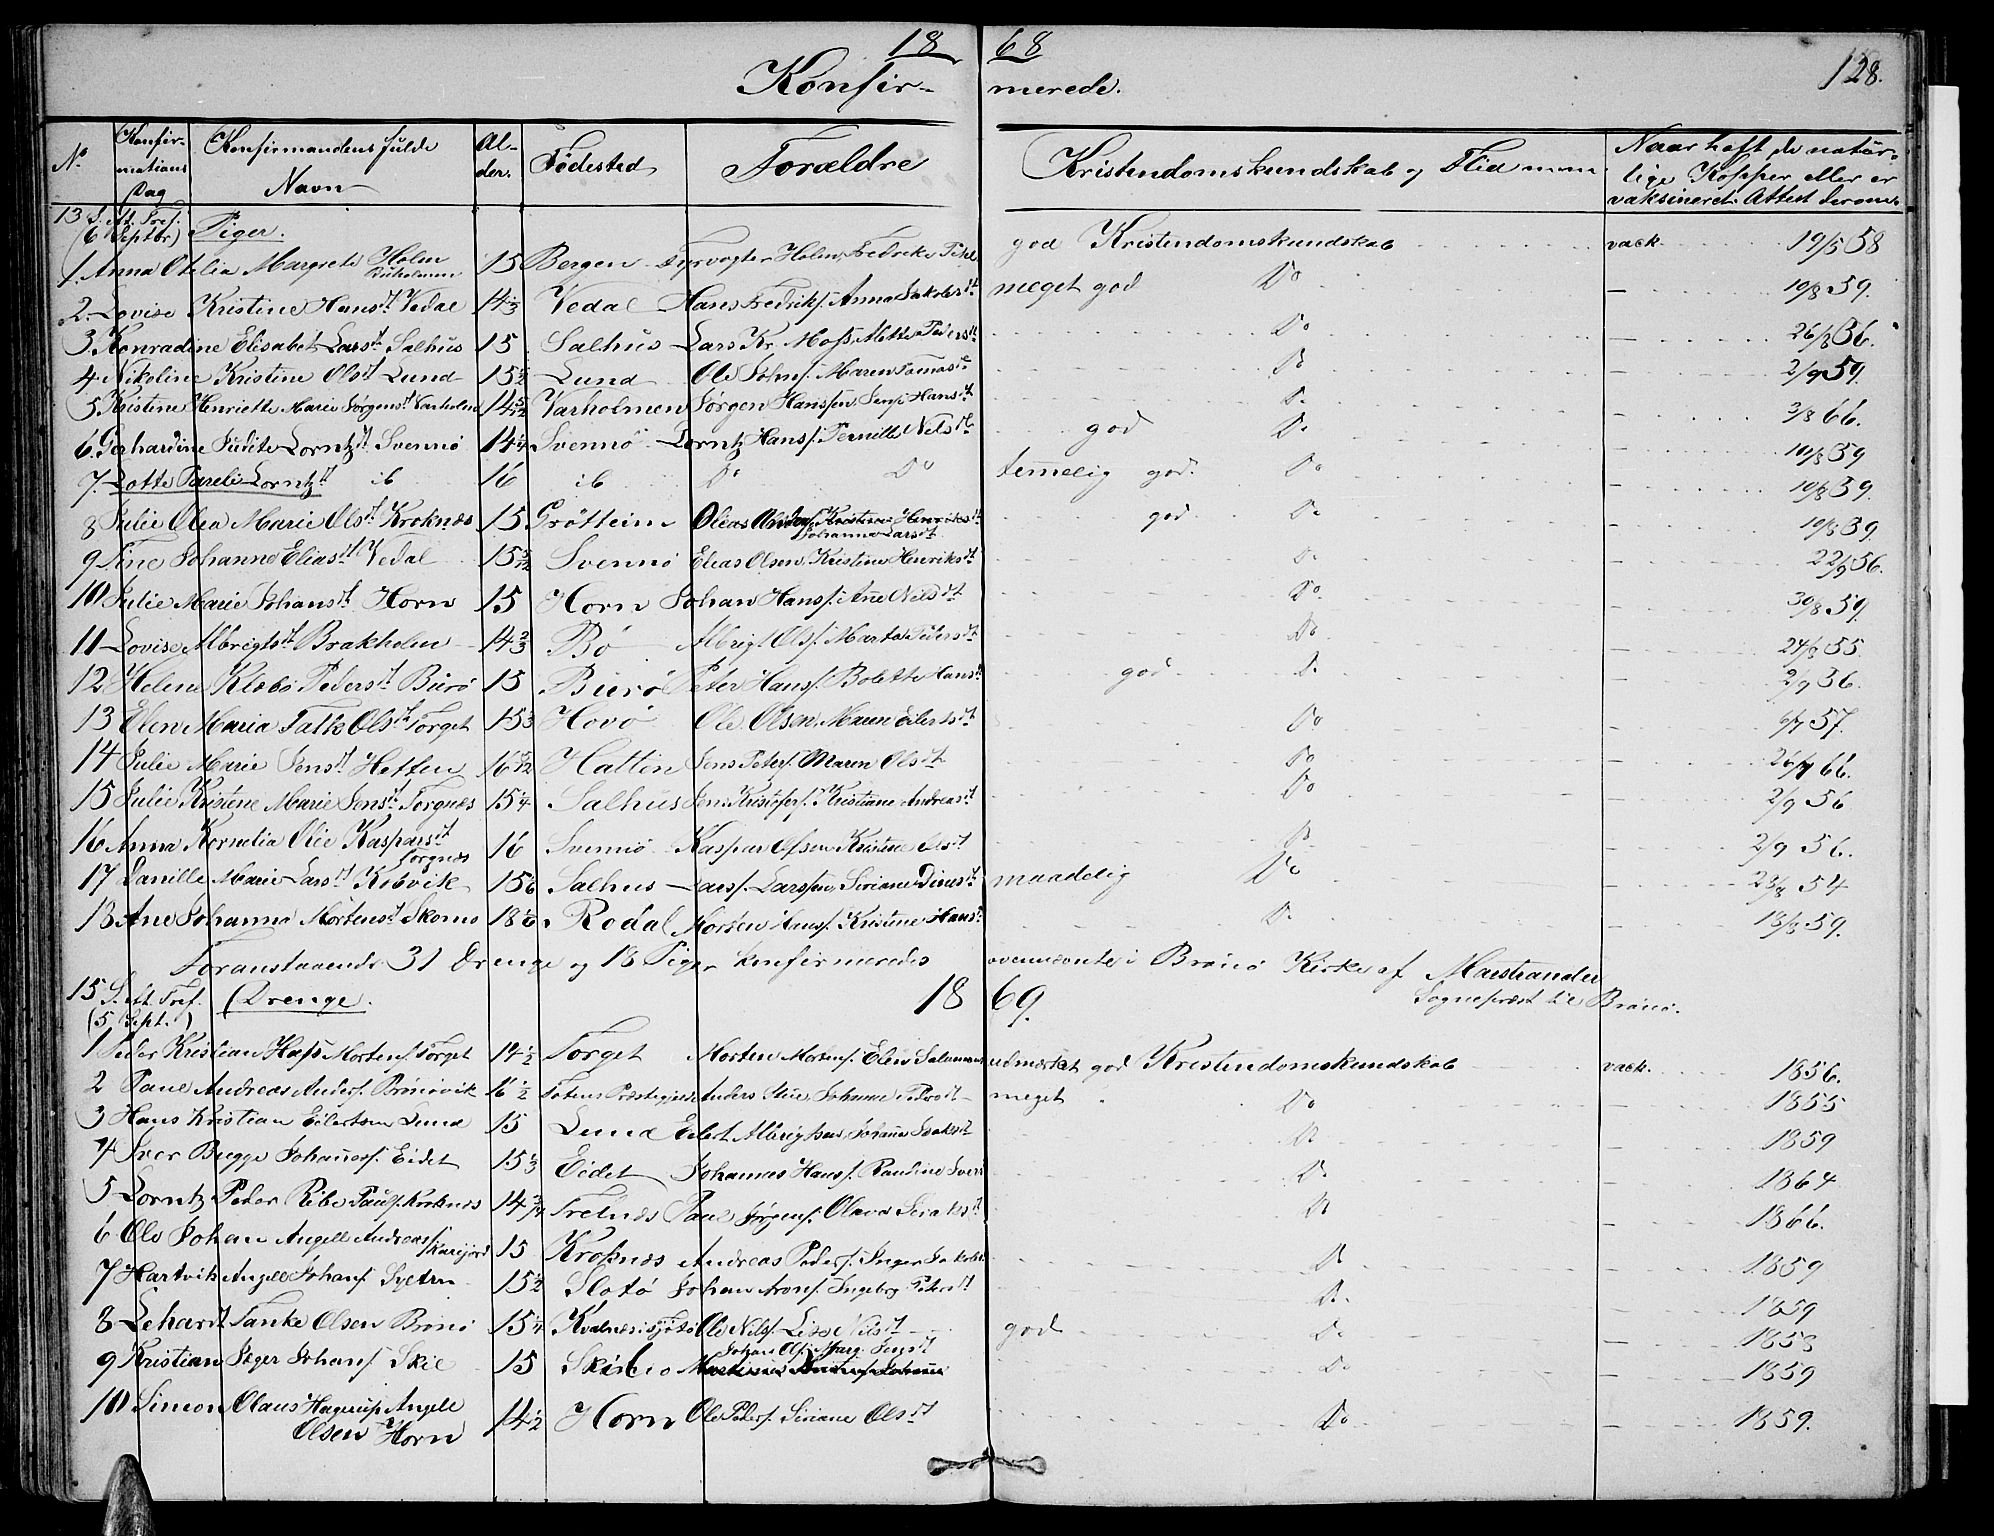 18 68
128.
Konfir- merede.
No Konfirmations Dag Konfirmandens fulde Navn Alder. Fødested Forældre Kristendomskundskab og Flid m.m. Naar haft de natúrlige Kopper eller er vaksineret. Attest derom.
13 S. Aft. Tref. (6 Septbr) Piger.
1. Anna Otelia Margrete Holm 15 Bergen Fyrvogter Holm, Fredrike god Kristendomskundskab vack. 19/5 58
2. Lovise Kristine Hansdt Vedal 14 1/3 Vedal Hans Fredriks. Anna Jakobsdt meget god Do - 19/8 59.
3. Konradine Elisabet Larsdt Salhús 15 Salhús Lars Kr. Moss, Mette Pedersdt Do - 26/8 56.
4 Nikoline Kristine Olsdt Lund 15 1/2 Lund Ole Johns. Maren Tomasdt Do - 2/9 59.
5 Kristine Henriette Marie Jørgensdt Varholmen 14 5/12 Varholmen Jørgen Hanssen, Hansdt Do - 3/8 66.
6. Gerhardine Júdite Lorntzdt Svennø 14 1/4 Svennø Lorntz Hans. Pernille Nilsdt god Do - 10/8 59
7. Lotte Pareli Lorntzdt ib 16 ib Do Do temelig god. Do - 10/8 59.
8 Julie Olea Marie Olsdt Kroknæs 15 Grøtteim Olaus Johanna Larsdt god Do - 10/8 59.
9 Tine Johanne Eliasdt Vedal 15 Svennø Elias Olsen, Kristine Henriksdt Do - 22/9 56.
10 Julie Marie Johansdt Horn 15 Horn Johan Hans. Ane Nilsdt Do - 30/8 59.
11 Lovise Albrigtsdt Brakholm 14 2/3 Bø Albrigt Ols. Marta Pedersdt Do - 24/8 55.
12 Helene Klæbø Pedersdt Búrø 15 Búrø Peter Hans. Bolette Hansdt god Do - 2/9 56.
13 Elen Maria Falk Olsdt Torget 15 Hovø Ole Olsen, Maren Eilertsdt Do - 6/7 57.
14 Julie Marie Jensdt Hetten 16 Hatten Jens Peters. Maren Olsdt Do - 26/7 66.
15 Julie Kristene Marie Jensdt Torgnæs 15 1/4 Salhús Jens Kristofers. Kristiane Andreasdt Do - 2/9 56
16 Anna Kornelia Olie Kasparsdt Torgnæs 16 Svennø Kaspar Olsen, Kristine Olsdt Do - 2/9 56.
17 Danille Marie Larsdt Kobvik 15 Salhus Larssen, Siriane maadelig Do - 54
18 Ane Johanna Mortensdt Skomo 18 Rodal Morten Hans. Kristine Hansdt Do - 59.
Foranstaaende 31 Drenge og 18 Piger konfirmeredes ovennævnte i Brønø Kirke af Maestrander Sogneprest til Brønø.
15 S. Aft. Tref. (5 Sept.) (Drenge. 18 69.
1 Peder Kristian Hass Mortens. Torget 14 1/2 Torget Morten Mortens. Elen udmærket god Kristendomskundskab vack. 1856.
2 Paul Andreas Anders. Brønøvik 16 1/2 Totens Præstegjeld Anders Johanne meget Do - 1855
3 Hans Kristian Eilertsen Lund 15 Lund Eilert Albrigtsen, Johanna Do - 1859
4 Iver Bugge Johanes. Eidet 15 1/3 Eidet Johannes Hans. Randine Do - 1864
5 Lorntz Peter Ribe Pauls. Kroknæs 14 Paul Jørgens. Olava Do - 1866.
6 Ole Johan Angell Andreas. 15 Kroknæs Andreas Peders. Inger Do - 1859
7 Hartvik Angell Johans. 15 1/2 Slotø Johan Arons. Ingebrg Petersdt Do - 1859
8 Lehardt Tanke Olsen Brønø 15 1/4 Ole Nils. Lise Nilsdt god Do - 1853
9 Kristian Jæger Johans. Skil 15 Johan Ols. Marg. Do - 1859
10 Simon Olaus Hagerup Angell Olsen Horn 14 1/2 Horn Ole Peders. Siriane Olsdt Do - 1859.